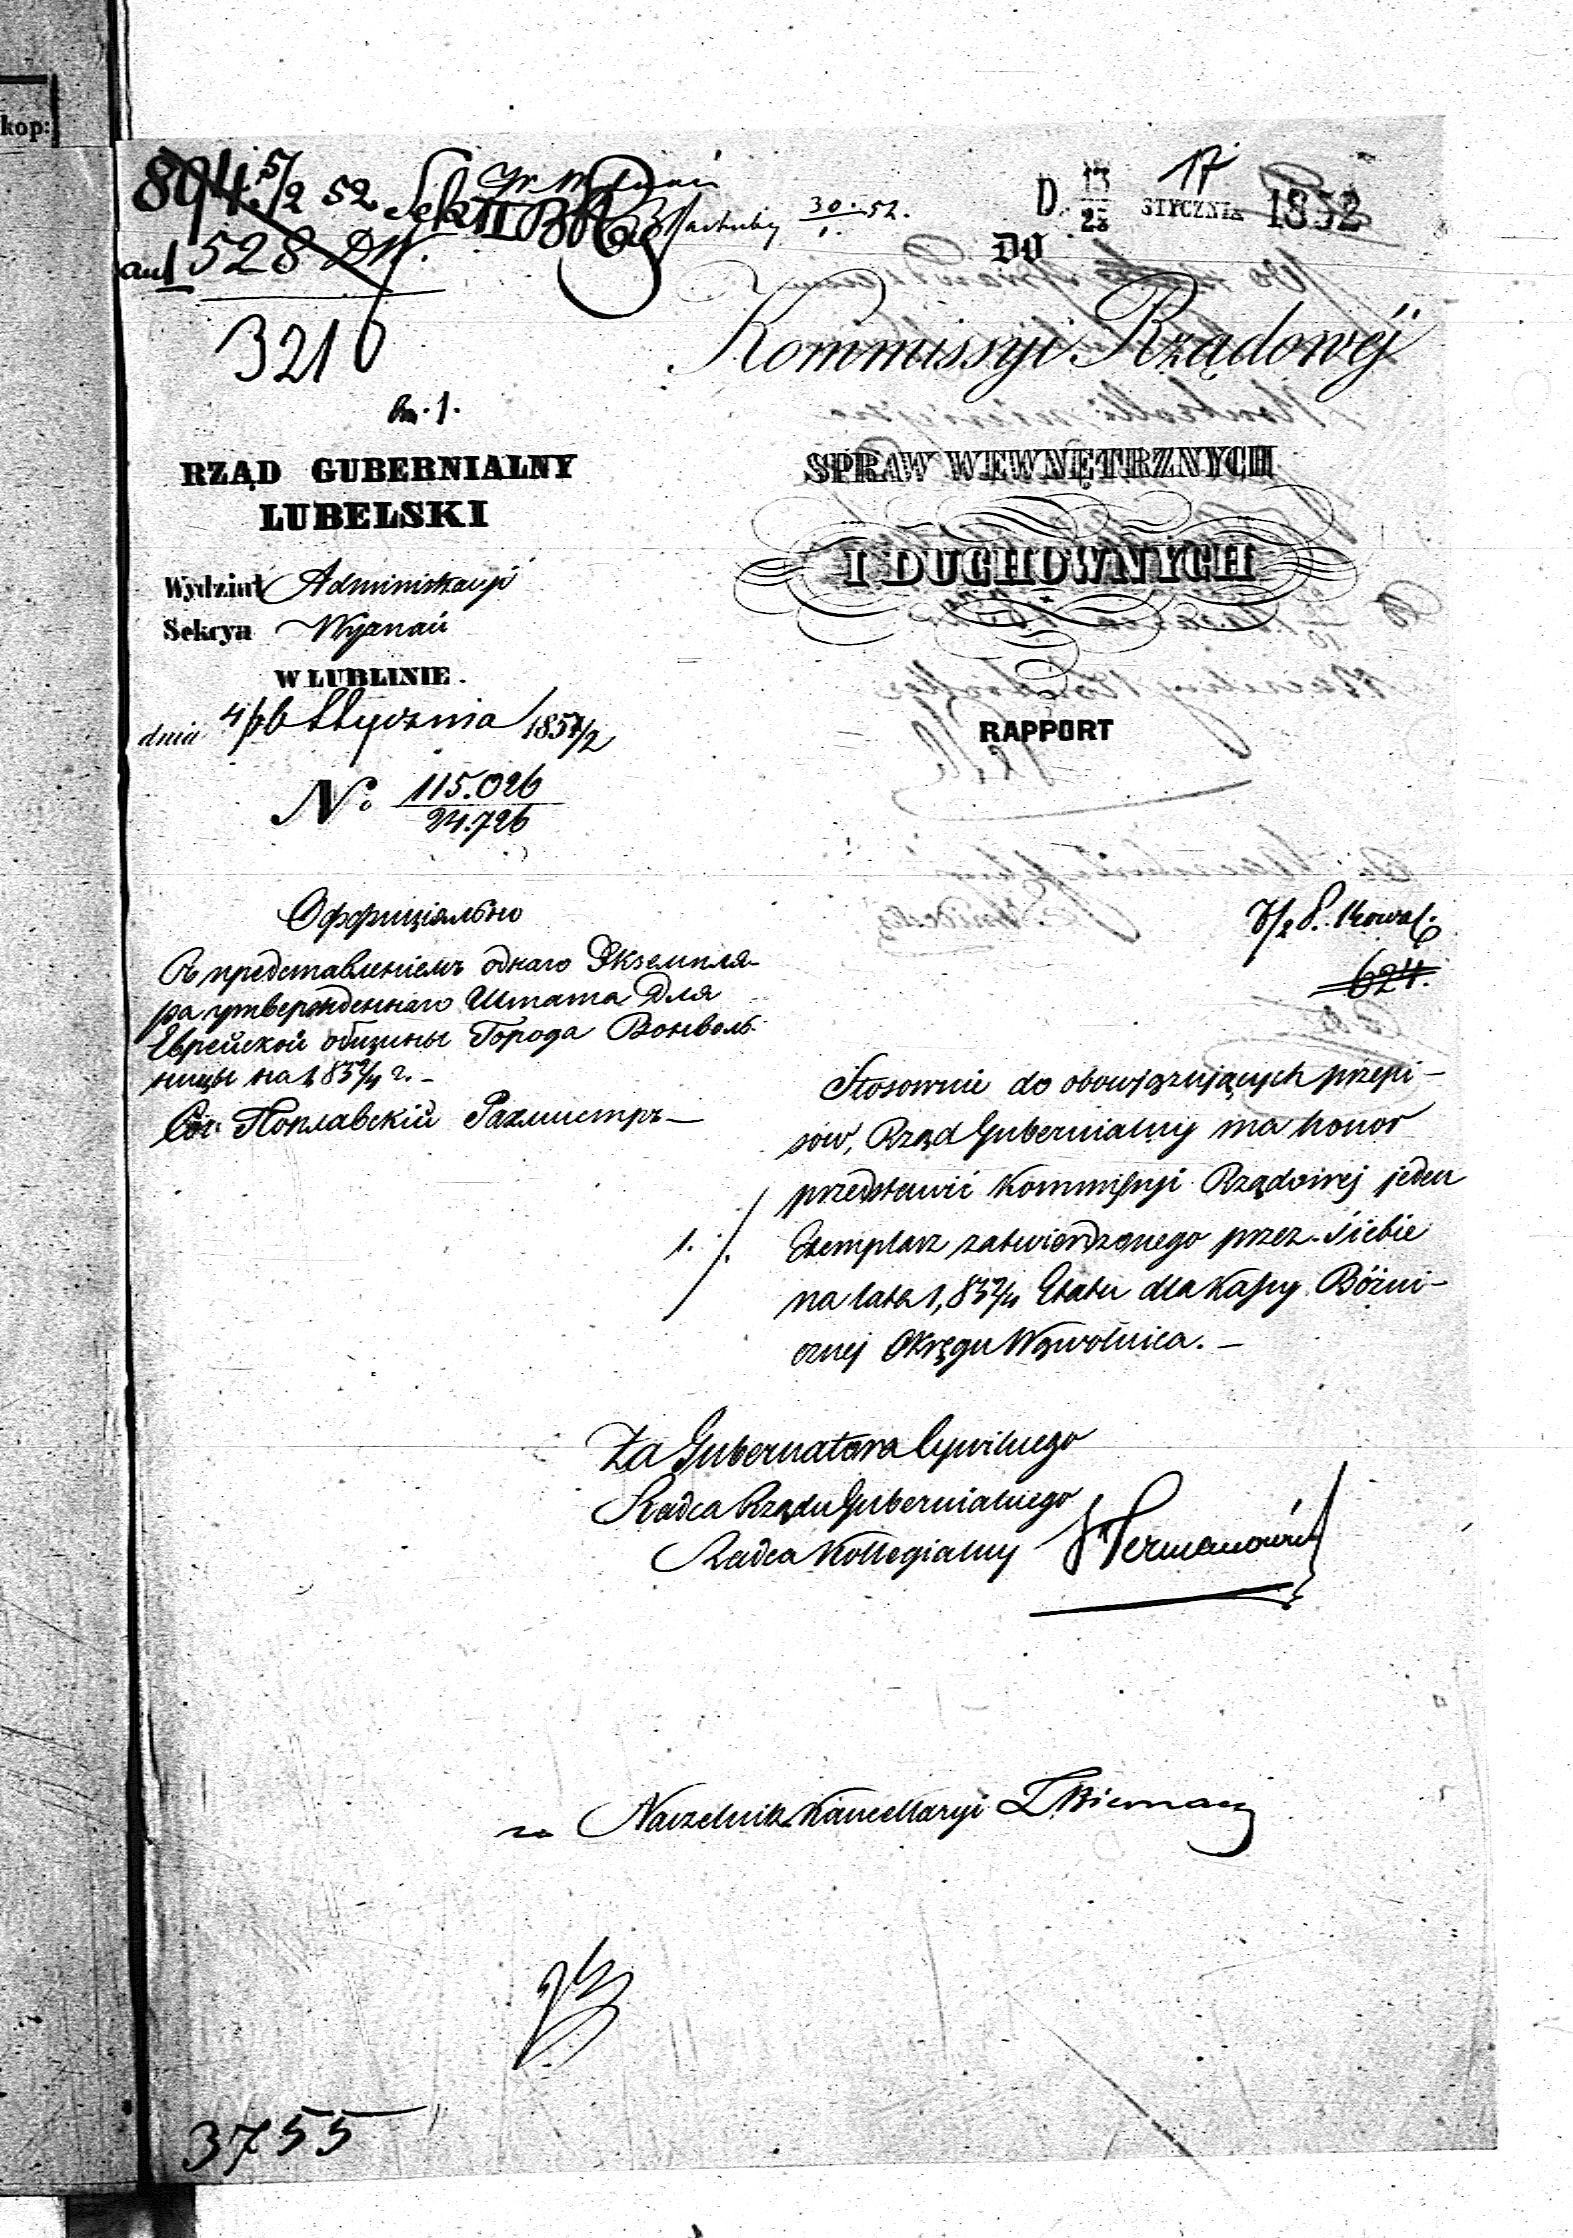 kop:
894 5/2 52 Sek II
ad 528 DW.
3210
bn. 1.
30/1 52.
D. 13/25 STYCZNIA 1852
17
DO
Kommissyi Rządowéj
SPRAW WEWNĘTRZNYCH
I DUCHOWNYCH
RAPPORT
RZĄD GUBERNIALNY
LUBELSKI
Wydział Administracyi
Sekcya Wyznań
W LUBLINIE.
dnia 4/16 Stycznia 1851/2
No. 115.026
24.726
Оффиціяльно
Съ представленіемъ однаго Экземпля-
ра утвержденнаго Штата для
Еврейской общины Города Вонволь
ницы на 1852/4 г. —
Сов. Поплавскій Рахмистръ —
7/2 P. Kowal.
624.
Stosownie do obowiązujących przepi-
sów, Rząd Gubernialny ma honor
przedstawić Kommissyi Rządowej jeden
1. Exemplarz zatwierdzonego przez siebie
na lata 1,852/4 Etatu dla Kassy Bóżni-
cznej Okręgu Wąwolnica. —
Za Gubernatora Cywilnego
Radca Rządu Gubernialnego
Radca Kollegialny Hermanowicz
za Naczelnik Kancellaryi
3755